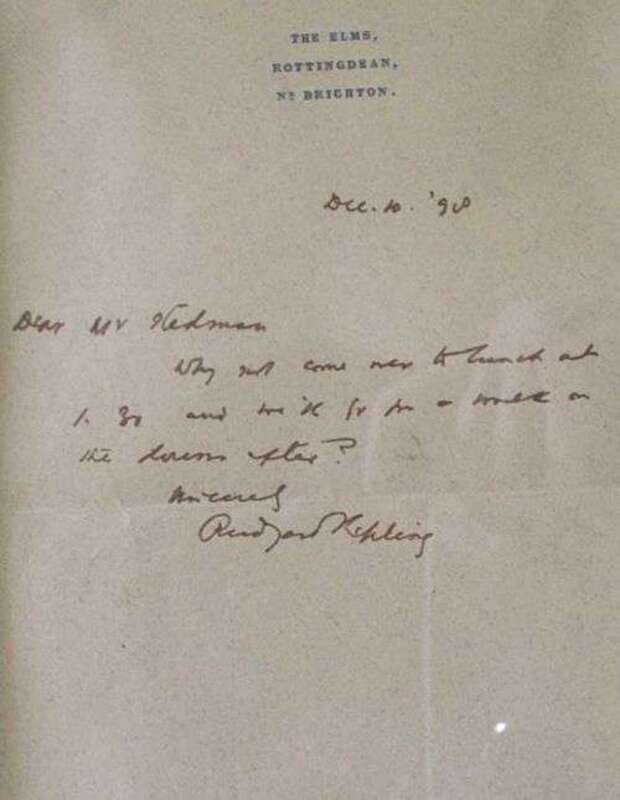 THE ELMS,
ROTTINGDEAN,
Nr BRIGHTON.
Dec. 10. '98
Dear Mr
Why not come over to lunch at
1. 30 and we'll go for a walk on
the downs after?
Sincerely
Rudyard Kipling